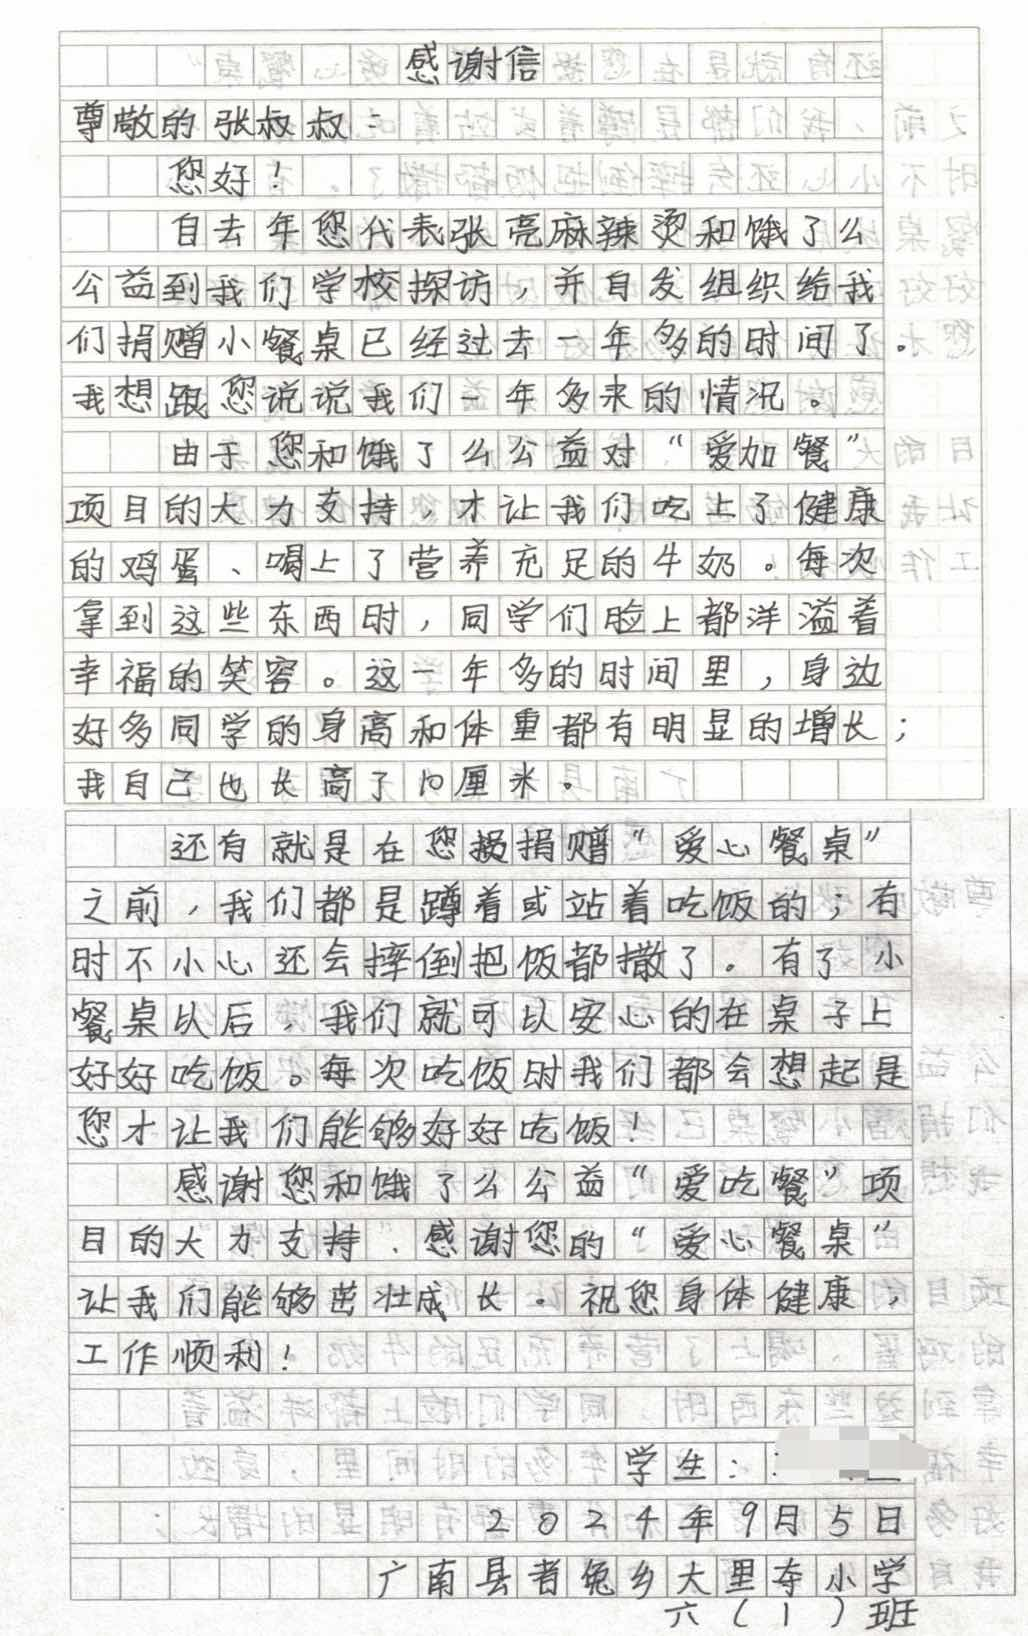 感谢信
尊敬的张叔叔：
您好！
自去年您代表张亮麻辣烫和饿了么
公益到我们学校探访，并自发组织给我
们捐赠小餐桌已经过去一年多的时间了。
我想跟您说说我们一年多来的情况。
由于您和饿了么公益对“爱加餐”
项目的大力支持，才让我们吃上了健康
的鸡蛋、喝上了营养充足的牛奶。每次
拿到这些东西时，同学们脸上都洋溢着
幸福的笑容。这一年多的时间里，身边
好多同学的身高和体重都有明显的增长；
我自己也长高了10厘米。
还有就是在您捐赠“爱心餐桌”
之前，我们都是蹲着或站着吃饭的，有
时不小心还会摔倒把饭都撒了。有了小
餐桌以后，我们就可以安心的在桌子上
好好吃饭。每次吃饭时我们都会想起是
您才让我们能够好好吃饭！
感谢您和饿了么公益“爱吃餐”项
目的大力支持、感谢您的“爱心餐桌”
让我们能够茁壮成长。祝您身体健康，
工作顺利！
学生：
2024年9月5日
广南县者兔乡大里夺小学
六（1）班